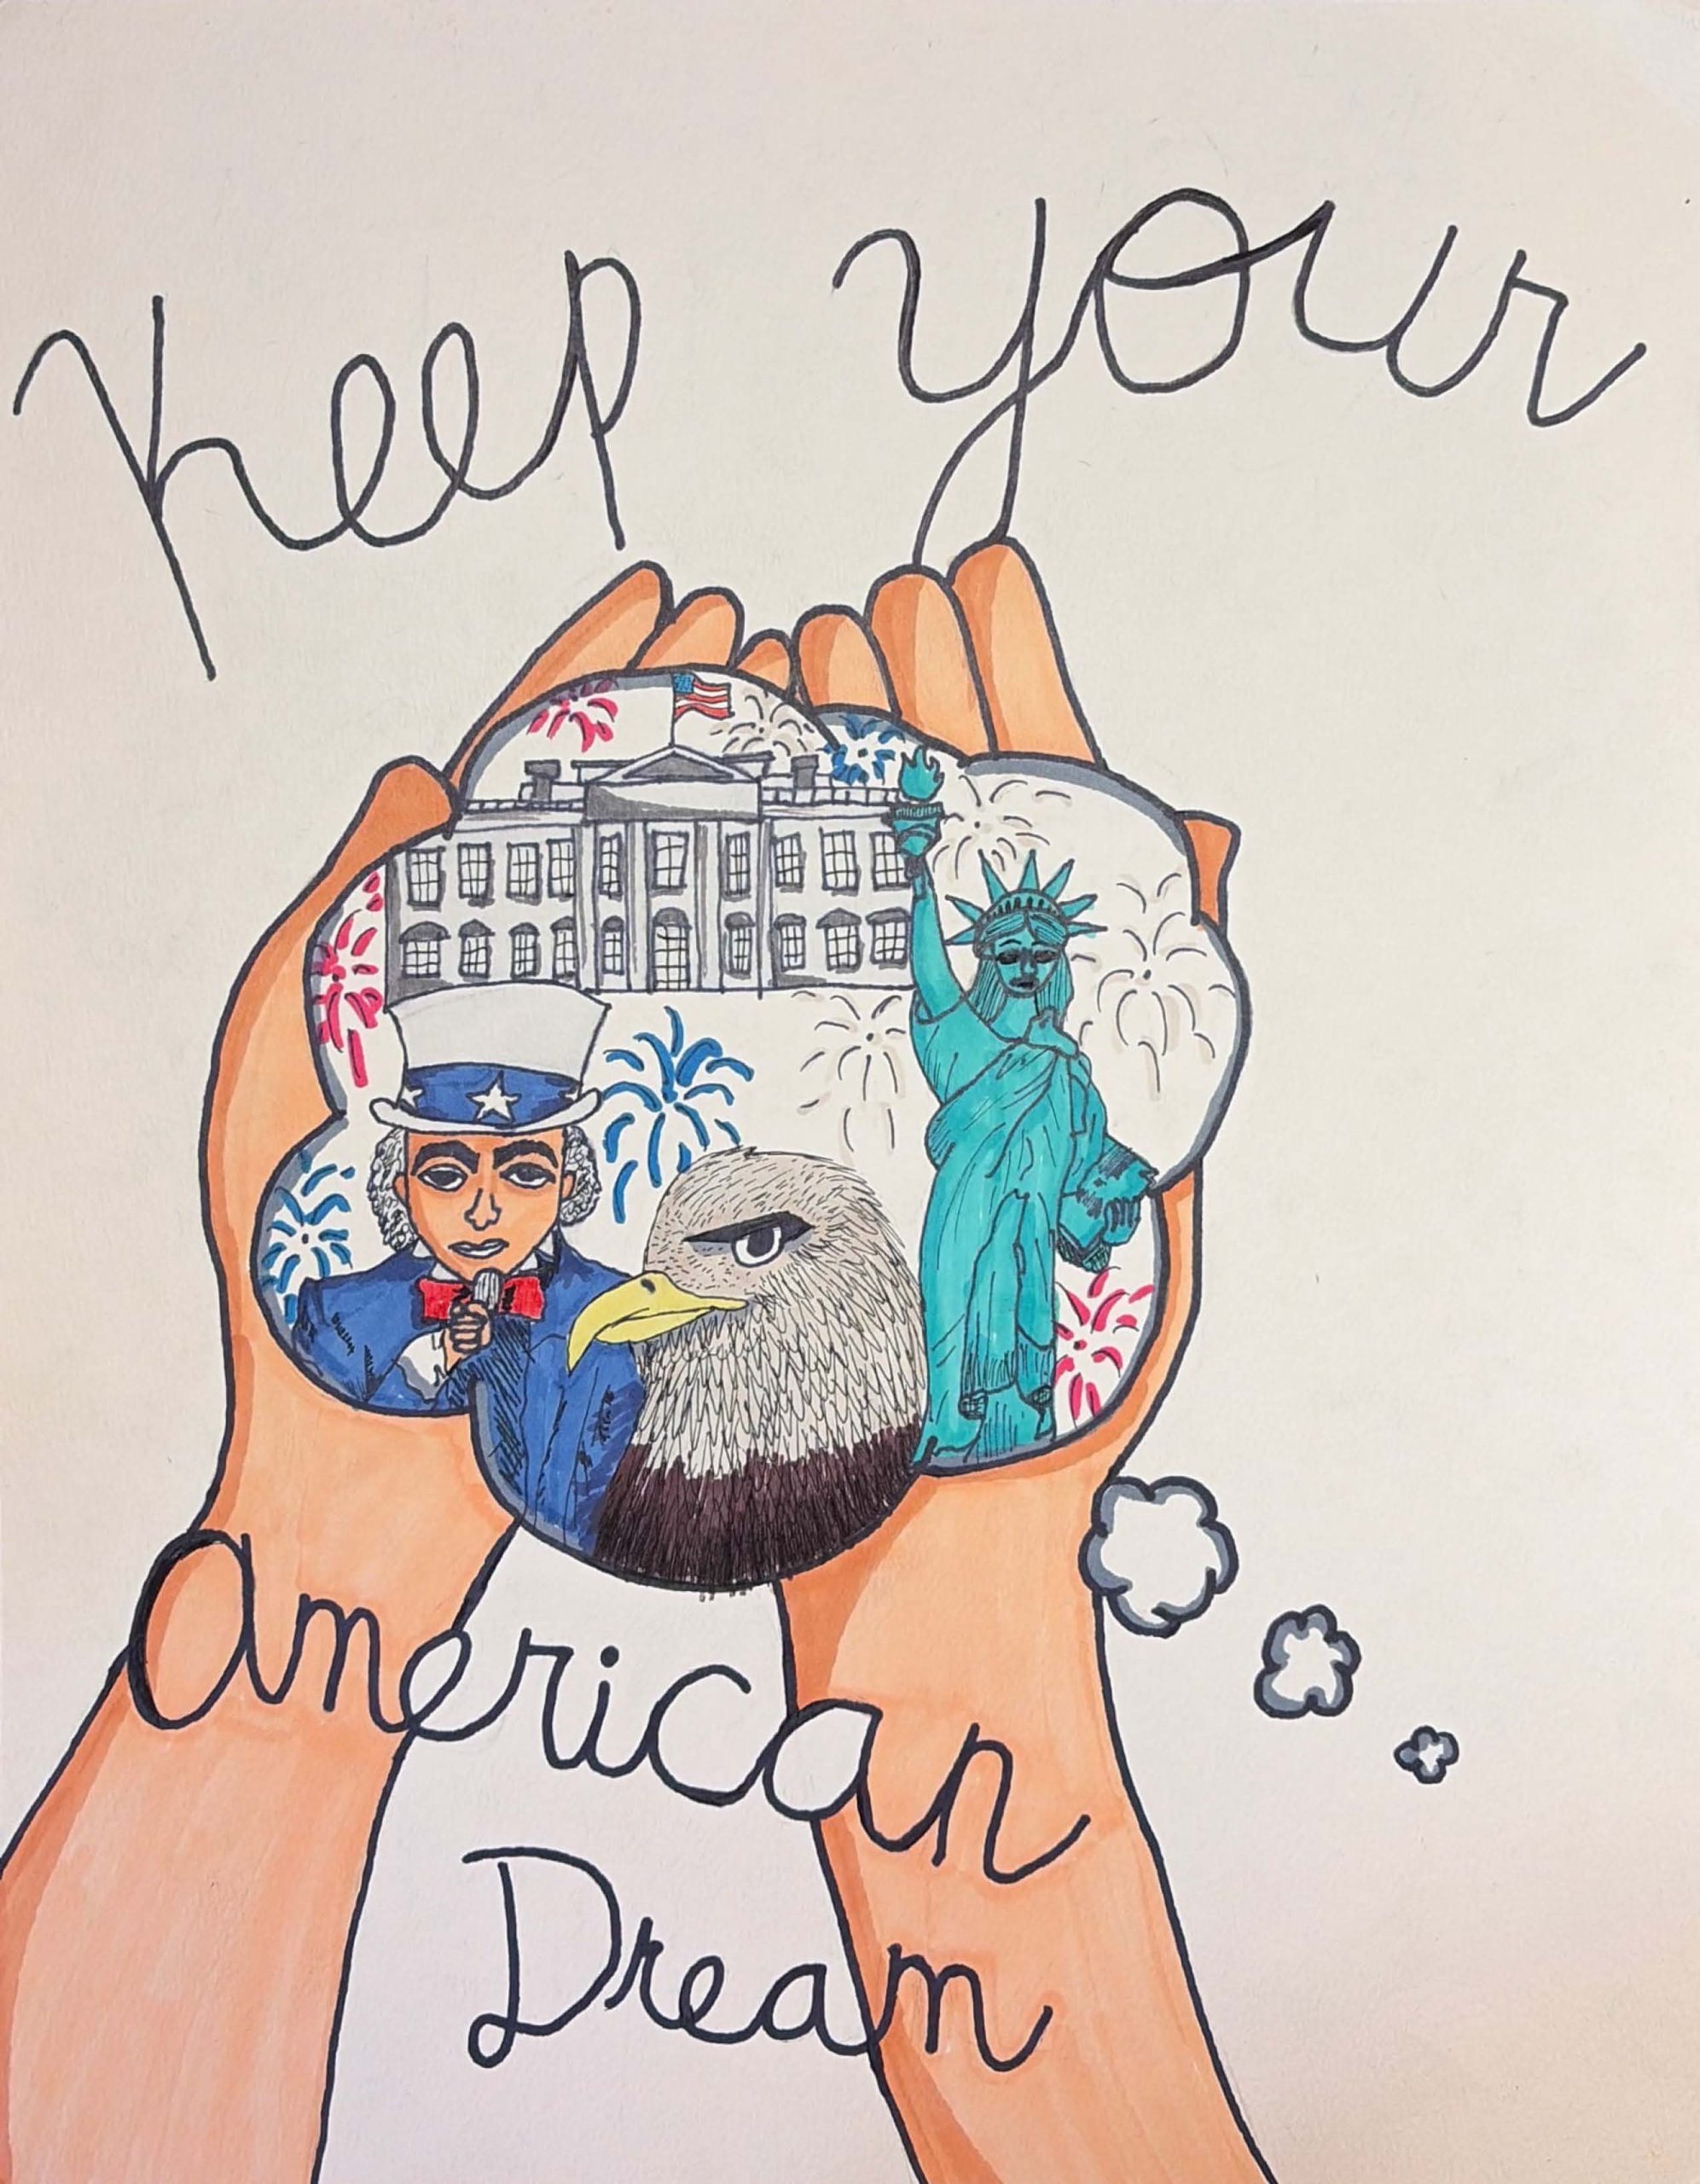 Keep your
American
Dream